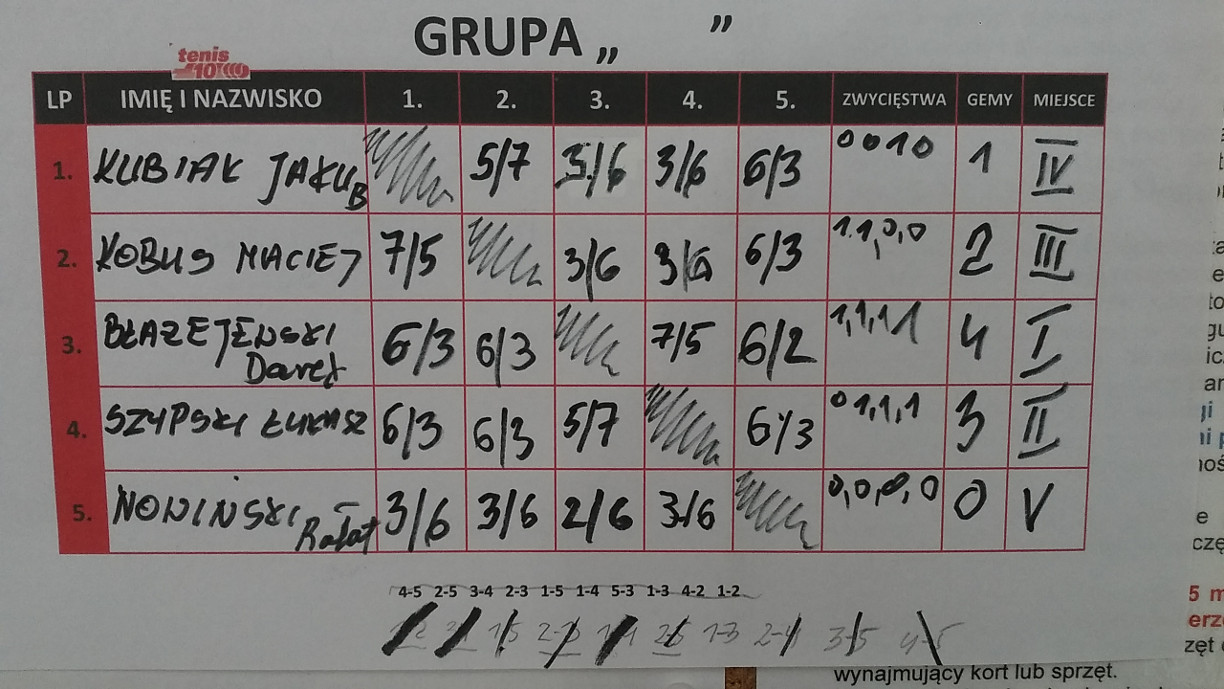 GRUPA „ ”
tenis
10
LP IMIĘ I NAZWISKO 1. 2. 3. 4. 5. ZWYCIĘSTWA GEMY MIEJSCE
1. KUBIAK JAKUB 5/7 3/6 3/6 6/3 0 0 1 0 1 IV
2. KOBUS MACIEJ 7/5 3/6 3/6 6/3 1.1,0,0 2 III
3. BŁAZEJEWSKI Darek 6/3 6/3 7/5 6/2 1,1,1 1 4 I
4. SZYPSKI ŁUKASZ 6/3 6/3 5/7 6/3 0 1,1,1 3 II
5. NOWIŃSKI Rafał 3/6 3/6 2/6 3/6 0,0,0,0 0 V
4-5 2-5 3-4 2-3 1-5 1-4 5-3 1-3 4-2 1-2
1-3 2-4 3-5 4-5
wynajmujący kort lub sprzęt.
5 m